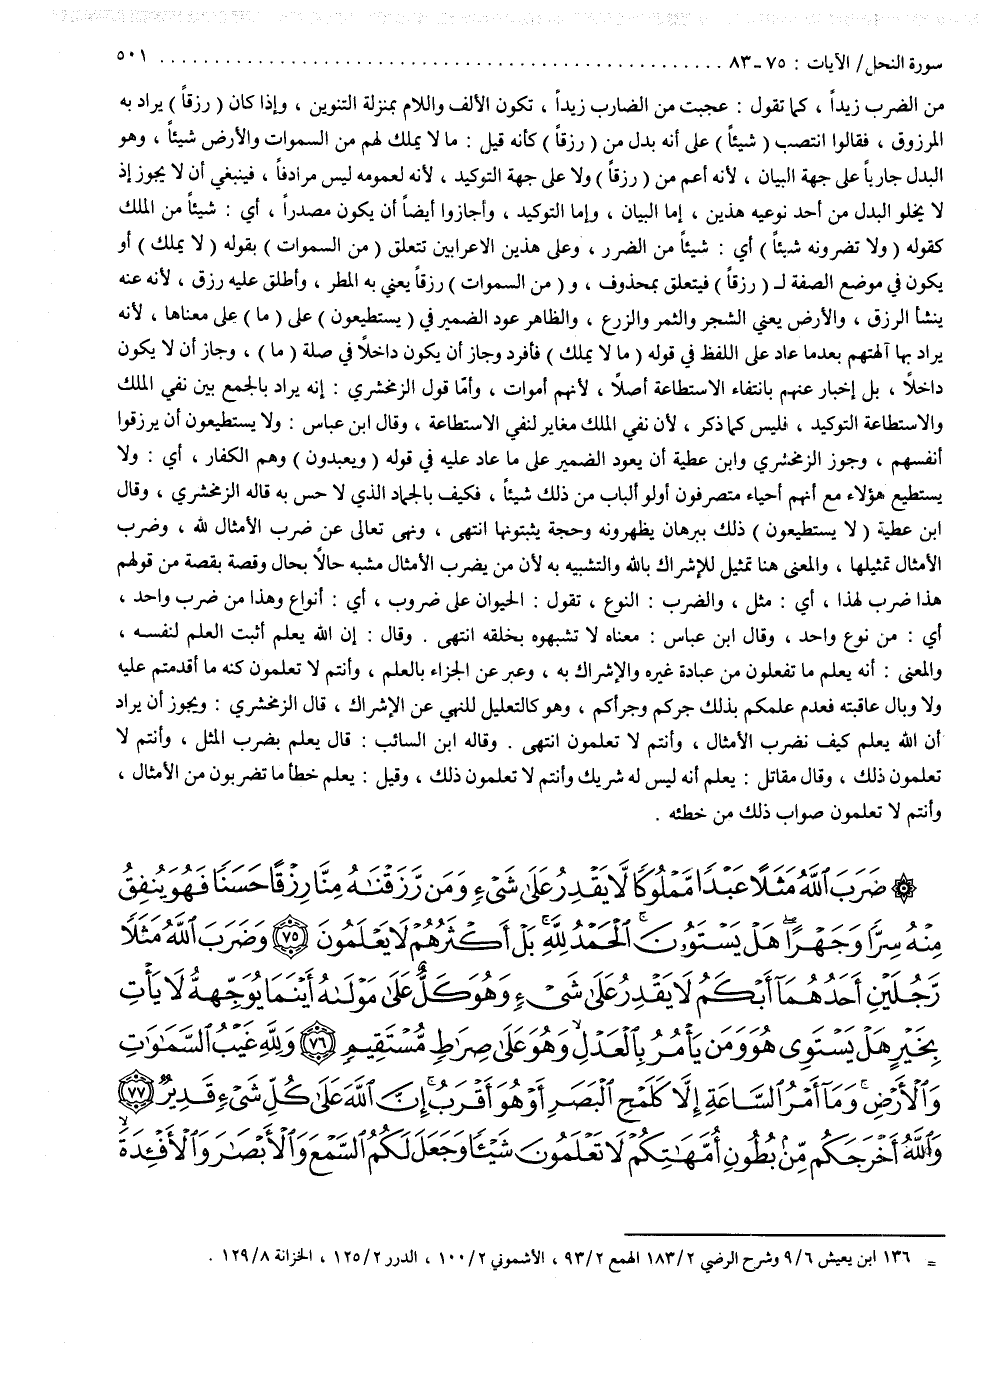 سورة النحل/ الآيات : ٧٥-٨٣ . . . . . . . . . . . . . . . . . . . . . . . . . . . . . . . . . . . . . . . . ٥٠١
من الضرب زيداً ، كما تقول : عجبت من الضارب زيداً ، تكون الألف واللام بمنزلة التنوين ، وإذا كان ( رزقاً ) يراد به
المرزوق ، فقالوا انتصب ( شيئاً ) على أنه بدل من ( رزقاً ) كأنه قيل : ما لا يملك لهم من السموات والأرض شيئاً ، وهو
البدل جارياً على جهة البيان ، لأنه أعم من ( رزقاً ) ولا على جهة التوكيد ، لأنه لعمومه ليس مرادفاً ، فينبغي أن لا يجوز إذ
لا يخلو البدل من أحد نوعيه هذين ، إما البيان ، وإما التوكيد ، وأجازوا أيضاً أن يكون مصدراً ، أي : شيئاً من الملك
كقوله ( ولا تضرونه شيئاً ) أي : شيئاً من الضرر ، وعلى هذين الاعرابين تتعلق ( من السموات ) بقوله ( لا يملك ) أو
يكون في موضع الصفة لـ ( رزقاً ) فيتعلق بمحذوف ، و ( من السموات ) رزقاً يعني به المطر ، وأطلق عليه رزق ، لأنه عنه
ينشأ الرزق ، والأرض يعني الشجر والثمر والزرع ، والظاهر عود الضمير في ( يستطيعون ) على ( ما ) على معناها ، لأنه
يراد بها آلهتهم بعدما عاد على اللفظ في قوله ( ما لا يملك ) فأفرد وجاز أن يكون داخلاً في صلة ( ما ) ، وجاز أن لا يكون
داخلاً ، بل إخبار عنهم بانتفاء الاستطاعة أصلاً ، لأنهم أموات ، وأمّا قول الزمخشري : إنه يراد بالجمع بين نفي الملك
والاستطاعة التوكيد ، فليس كما ذكر ، لأن نفي الملك مغاير لنفي الاستطاعة ، وقال ابن عباس : ولا يستطيعون أن يرزقوا
أنفسهم ، وجوز الزمخشري وابن عطية أن يعود الضمير على ما عاد عليه في قوله ( ويعبدون ) وهم الكفار ، أي : ولا
يستطيع هؤلاء مع أنهم أحياء متصرفون أولو ألباب من ذلك شيئاً ، فكيف بالجماد الذي لا حس به قاله الزمخشري ، وقال
ابن عطية ( لا يستطيعون ) ذلك ببرهان يظهرونه وحجة يثبتونها انتهى ، ونهى تعالى عن ضرب الأمثال لله ، وضرب
الأمثال تمثيلها ، والمعنى هنا تمثيل للإشراك بالله والتشبيه به لأن من يضرب الأمثال مشبه حالاً بحال وقصة بقصة من قولهم
هذا ضرب لهذا ، أي : مثل ، والضرب : النوع ، تقول : الحيوان على ضروب ، أي : أنواع وهذا من ضرب واحد ،
أي : من نوع واحد ، وقال ابن عباس : معناه لا تشبهوه بخلقه انتهى . وقال : إن الله يعلم أثبت العلم لنفسه ،
والمعنى : أنه يعلم ما تفعلون من عبادة غيره والإشراك به ، وعبر عن الجزاء بالعلم ، وأنتم لا تعلمون كنه ما أقدمتم عليه
ولا وبال عاقبته فعدم علمكم بذلك جركم وجرأكم ، وهو كالتعليل للنهي عن الإشراك ، قال الزمخشري : ويجوز أن يراد
أن الله يعلم كيف نضرب الأمثال ، وأنتم لا تعلمون انتهى . وقاله ابن السائب : قال يعلم بضرب المثل ، وأنتم لا
تعلمون ذلك ، وقال مقاتل : يعلم أنه ليس له شريك وأنتم لا تعلمون ذلك ، وقيل : يعلم خطأ ما تضربون من الأمثال ،
وأنتم لا تعلمون صواب ذلك من خطئه .
۞ ضَرَبَ ٱللَّهُ مَثَلًا عَبْدًا مَّمْلُوكًا لَّا يَقْدِرُ عَلَىٰ شَىْءٍ وَمَن رَّزَقْنَٰهُ مِنَّا رِزْقًا حَسَنًا فَهُوَ يُنفِقُ
مِنْهُ سِرًّا وَجَهْرًا ۖ هَلْ يَسْتَوُۥنَ ۚ ٱلْحَمْدُ لِلَّهِ ۚ بَلْ أَكْثَرُهُمْ لَا يَعْلَمُونَ ٧٥ وَضَرَبَ ٱللَّهُ مَثَلًا
رَّجُلَيْنِ أَحَدُهُمَآ أَبْكَمُ لَا يَقْدِرُ عَلَىٰ شَىْءٍ وَهُوَ كَلٌّ عَلَىٰ مَوْلَىٰهُ أَيْنَمَا يُوَجِّههُّ لَا يَأْتِ
بِخَيْرٍ هَلْ يَسْتَوِى هُوَ وَمَن يَأْمُرُ بِٱلْعَدْلِ ۙ وَهُوَ عَلَىٰ صِرَٰطٍ مُّسْتَقِيمٍ ٧٦ وَلِلَّهِ غَيْبُ ٱلسَّمَٰوَٰتِ
وَٱلْأَرْضِ ۚ وَمَآ أَمْرُ ٱلسَّاعَةِ إِلَّا كَلَمْحِ ٱلْبَصَرِ أَوْ هُوَ أَقْرَبُ ۚ إِنَّ ٱللَّهَ عَلَىٰ كُلِّ شَىْءٍ قَدِيرٌ ٧٧
وَٱللَّهُ أَخْرَجَكُم مِّنۢ بُطُونِ أُمَّهَٰتِكُمْ لَا تَعْلَمُونَ شَيْـًٔا وَجَعَلَ لَكُمُ ٱلسَّمْعَ وَٱلْأَبْصَٰرَ وَٱلْأَفْـِٔدَةَ ۙ
= ١٣٦ ابن يعيش ٩/٦ وشرح الرضي ١٨٣/٢ الهمع ٩٣/٢ ، الأشموني ١٠٠/٢ ، الدرر ١٢٥/٢ ، الخزانة ١٢٩/٨ .